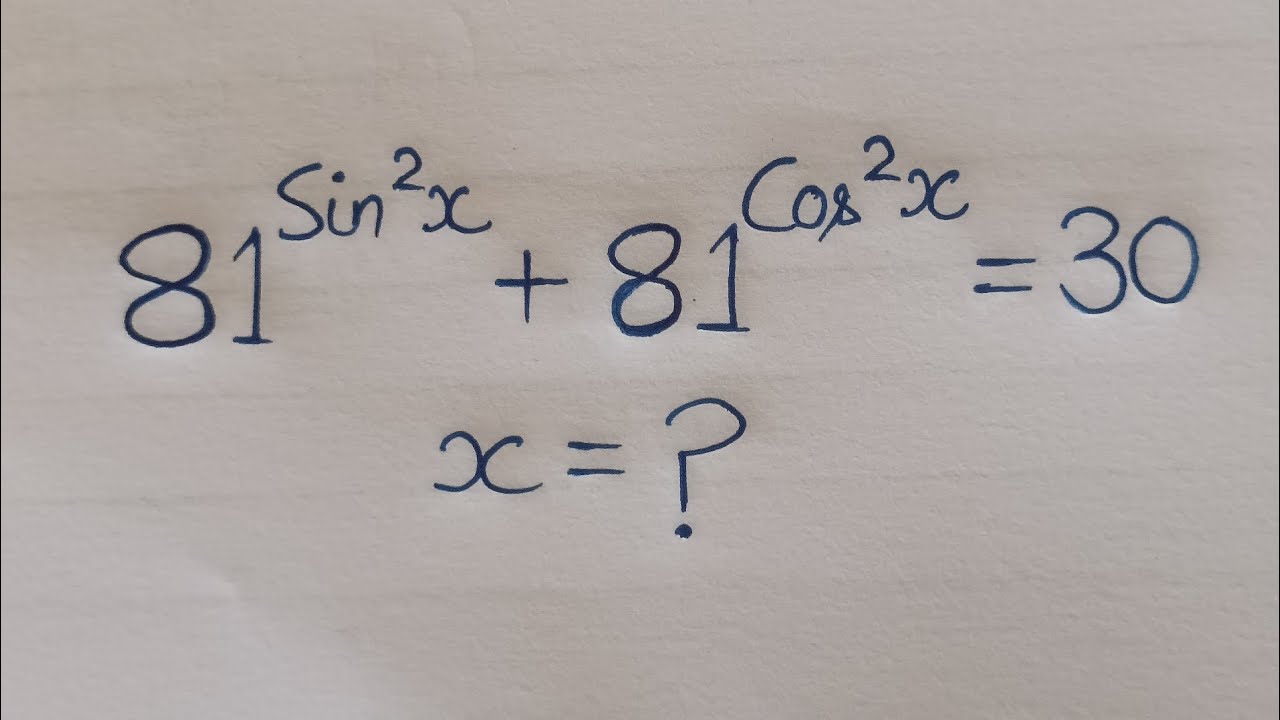 81^Sin²x + 81^Cos²x = 30
x = ?